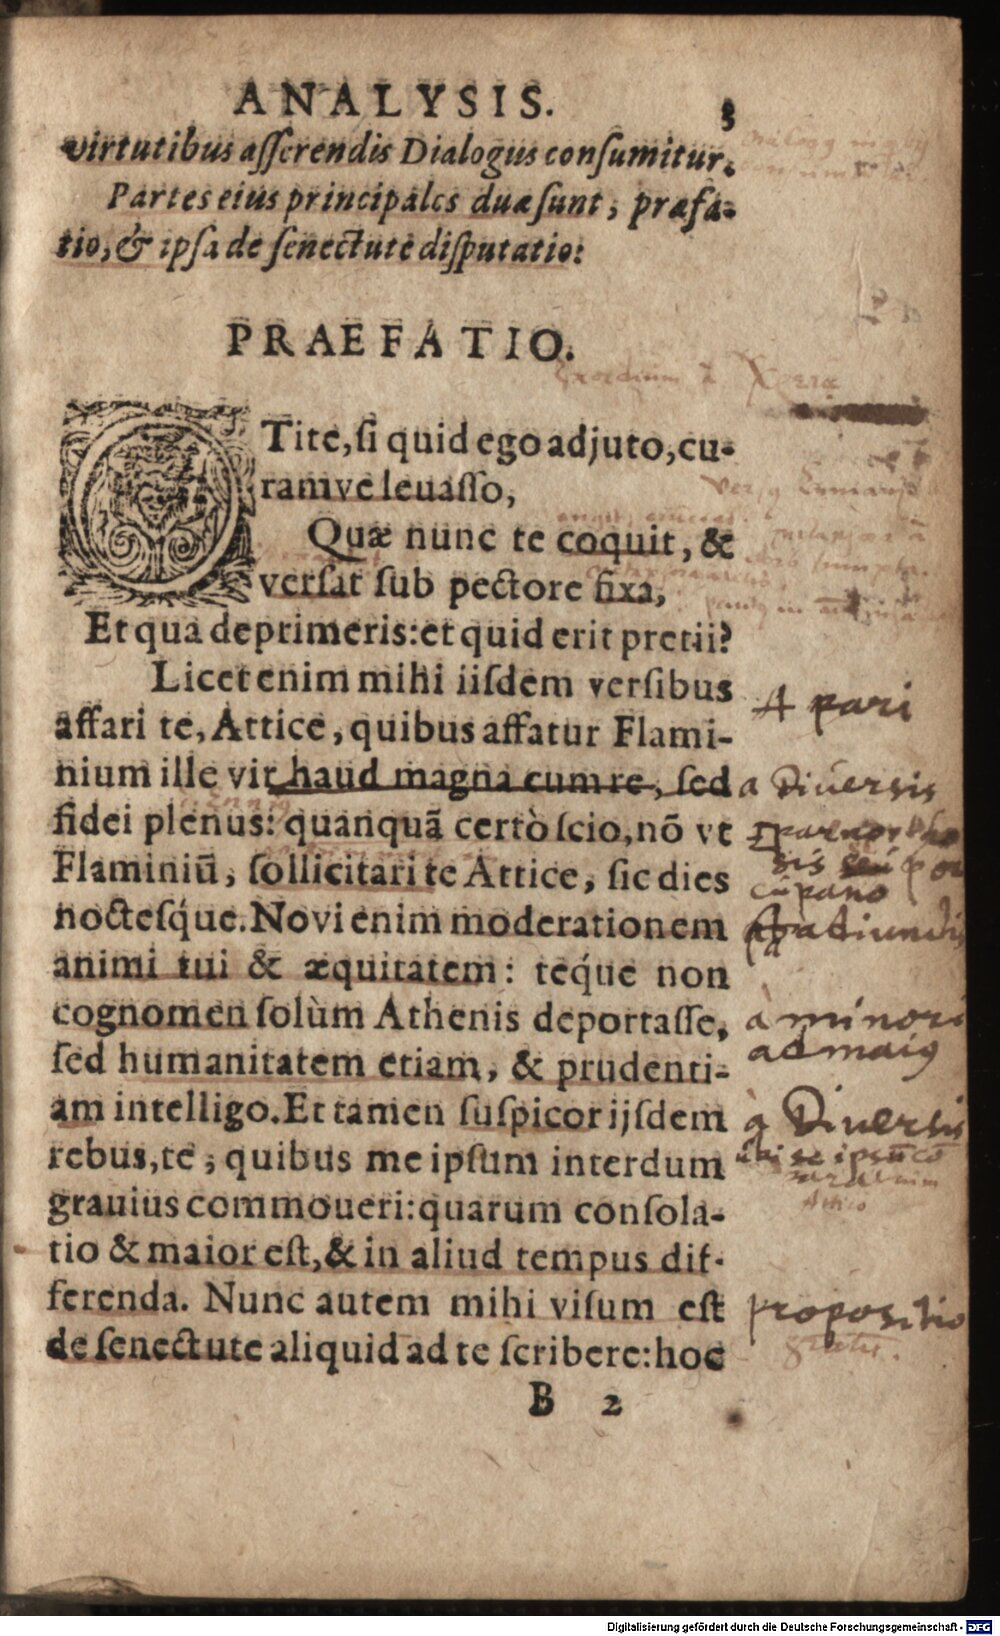 ANALYSIS. 3
virtutibus asserendis Dialogus consumitur.
Partes eius principales duæ sunt, præfa-
tio, & ipsa de senectute disputatio:
PRAEFATIO.
Exordium
O Tite, si quid ego adjuto, cu-
ramve leuasso,
Quæ nunc te coquit, &
versat sub pectore fixa,
Et qua deprimeris: et quid erit pretii?
Licet enim mihi iisdem versibus
A pari
affari te, Attice, quibus affatur Flami-
nium ille vir haud magna cum re, sed
a Diuersis
fidei plenus: quanquã certò scio, nõ vt
Flaminiũ, sollicitari te Attice, sic dies
noctesq́ue. Novi enim moderationem
animi tui & æquitatem: teq́ue non
cognomen solùm Athenis deportasse,
à minori
sed humanitatem etiam, & prudenti-
ad maiꝰ
am intelligo. Et tamen suspicor ijsdem
à Diuersis
rebus, te, quibus me ipsum interdum
grauius commoueri: quarum consola-
Attico
tio & maior est, & in aliud tempus dif-
ferenda. Nunc autem mihi visum est
propositio
de senectute aliquid ad te scribere: hoc
B 2
Digitalisierung gefördert durch die Deutsche Forschungsgemeinschaft - DFG